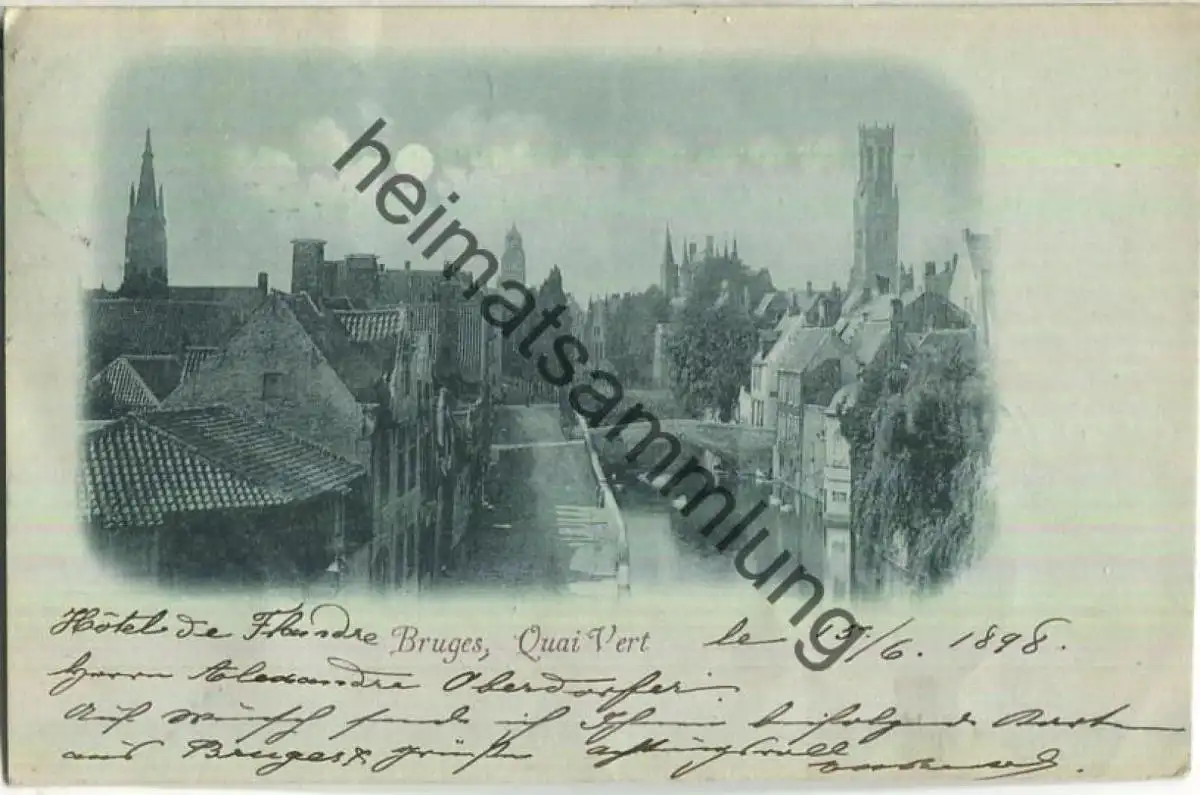 heimatsammlung
Hôtel de Flandre Bruges, Quai Vert le 15/6. 1898.
Herrn Alexandre Oberdorfer.
Auf Wunsch sende ich Ihnen beifolgend Karte
aus Bruges & grüße achtungsvoll